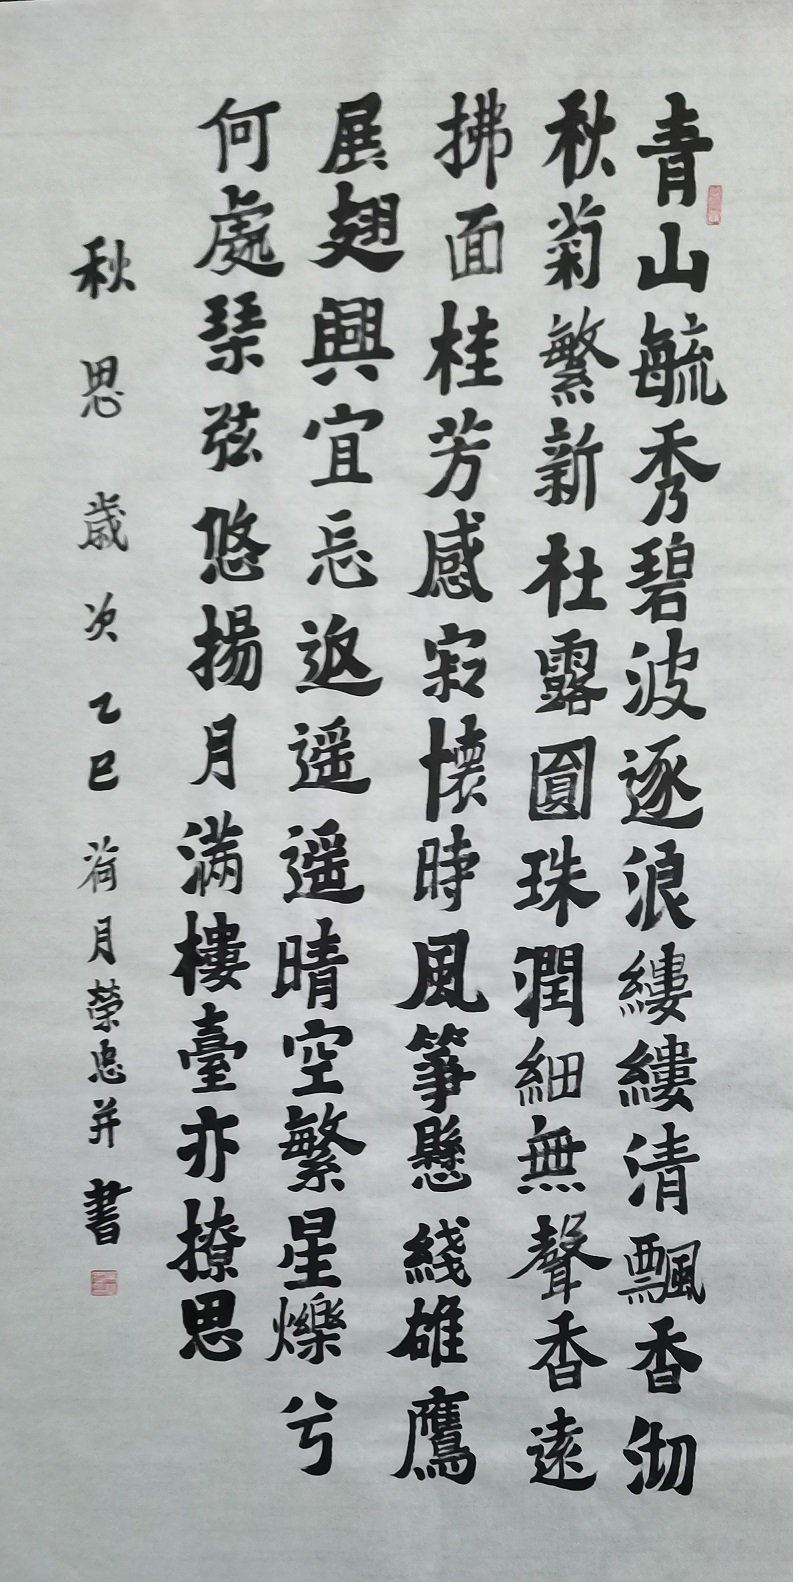 青山毓秀碧波逐浪縷縷清飄香沏
秋菊繁新杜露圓珠潤細無聲香遠
拂面桂芳感寂懷時風箏懸綫雄鷹
展翅興宜忘返遥遥晴空繁星爍兮
何處琴弦悠揚月滿樓臺亦撩思
秋思 歲次乙巳荷月榮忠并書